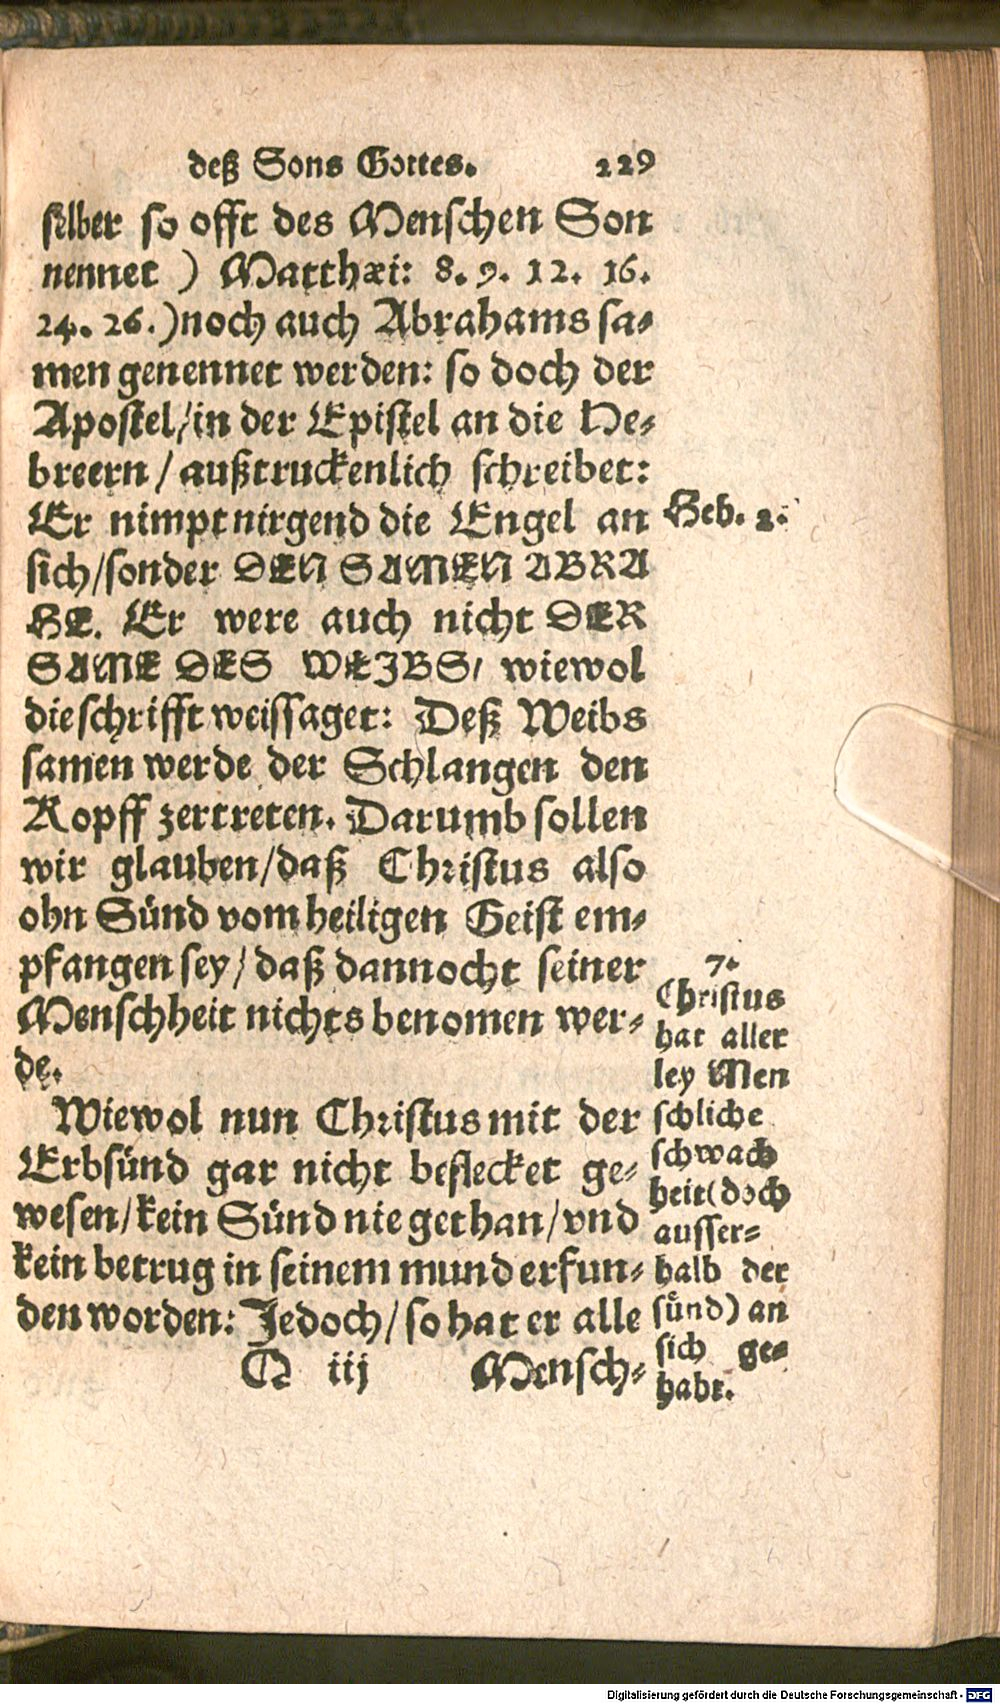 deß Sons Gottes. 229
selber so offt des Menschen Son
nennet ) Matthæi: 8. 9. 12. 16.
24. 26.) noch auch Abrahams sa-
men genennet werden: so doch der
Apostel/in der Epistel an die He-
breern / außtruckenlich schreibet:
Er nimpt nirgend die Engel an
sich/sonder DEN SAMEN ABRA
HE. Er were auch nicht DER
SAME DES WEIBS/ wiewol
die schrifft weissaget: Deß Weibs
samen werde der Schlangen den
Kopff zertreten. Darumb sollen
wir glauben/daß Christus also
ohn Sünd vom heiligen Geist em-
pfangen sey/daß dannocht seiner
Menschheit nichts benomen wer-
de.
Wiewol nun Christus mit der
Erbsünd gar nicht beflecket ge-
wesen/kein Sünd nie gethan/vnd
kein betrug in seinem mund erfun-
den worden: Jedoch/so hat er alle
Q iij Mensch-
Heb. 2.
7.
Christus
hat aller
ley Men
schliche
schwach
heit(doch
ausser-
halb der
sünd) an
sich ge-
habt.
Digitalisierung gefördert durch die Deutsche Forschungsgemeinschaft - DFG